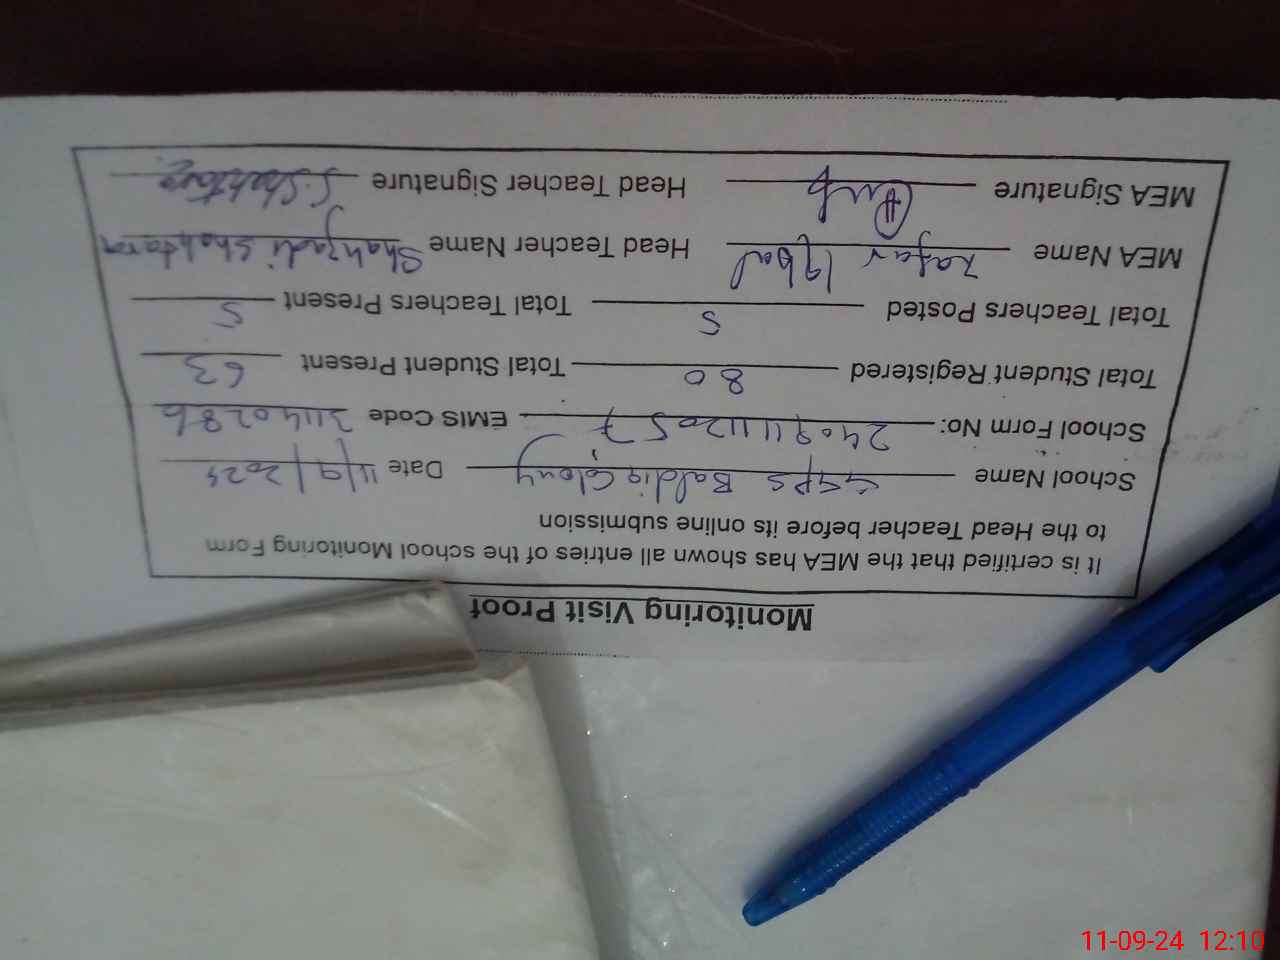 Monitoring Visit Proof
It is certified that the MEA has shown all entries of the school Monitoring Form
to the Head Teacher before its online submission
School Name GGPS Baldia Colony Date 11/9/2024
School Form No: 24091112057 EMIS Code 31140286
Total Student Registered 80 Total Student Present 63
Total Teachers Posted 5 Total Teachers Present 5
MEA Name Zafar Iqbal Head Teacher Name Shahzadi Shaktara
MEA Signature Head Teacher Signature
11-09-24 12:10